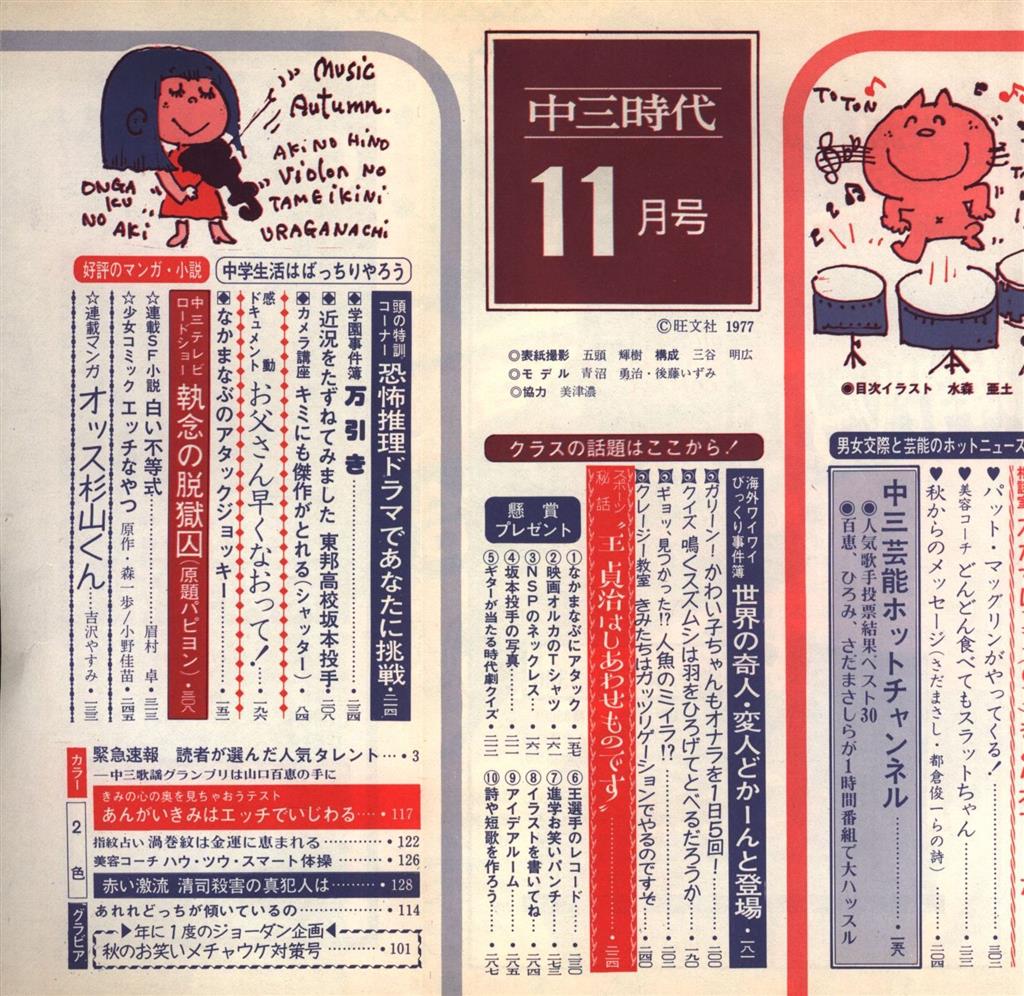 中三時代
11月号
©旺文社 1977
◎表紙撮影 五頭 輝樹 構成 三谷 明広
◎モデル 青沼 勇治・後藤いずみ
◎協力 美津濃
TOTON
●目次イラスト 水森 亜土
男女交際と芸能のホットニュース
♥パット・マッグリンがやってくる!……・三〇二
♥美容コーチ どんどん食べてもスラットちゃん……・三三二
♥秋からのメッセージ(さだまさし・都倉俊一らの詩)……・二〇四
中三芸能ホットチャンネル……・一五八
●人気歌手投票結果ベスト30
●百恵、ひろみ、さだまさしらが1時間番組で大ハッスル
クラスの話題はここから!
海外ワイワイびっくり事件簿 世界の奇人・変人どかーんと登場・一八一
ガリーン!かわい子ちゃんもオナラを1日5回!……・二〇〇
クイズ 鳴くスズムシは羽をひろげてとべるだろうか……・一九〇
ギョッ!見つかった!?人魚のミイラ!?……・一四〇
クレージー教室 きみたちはガッツリゲーションでやるのですぞ……・二四〇
スポーツ秘話 “王貞治はしあわせものです”……・二三四
懸賞プレゼント
①なかまなぶにアタック・一五七
②映画オルカのTシャツ・一六一
③NSPのネックレス・一六一
④坂本投手の写真……・二一一
⑤ギターが当たる時代劇クイズ・二二二
⑥王選手のレコード・二三〇
⑦進学お笑いパンチ・二七三
⑧イラストを書いてね・二八四
⑨アイデアルーム……・二八五
⑩詩や短歌を作ろう…・二八七
Music
Autumn.
AKI NO HINO
Violon NO
TAMEIKINI
URAGANACHI
ONGA
KU
NO AKI
中学生活はばっちりやろう
頭の特訓コーナー 恐怖推理ドラマであなたに挑戦・二一四
◆学園事件簿 万引き……・一三四
◆近況をたずねてみました 東邦高校坂本投手・二〇八
◆カメラ講座 キミにも傑作がとれる(シャッター)・八四
感動ドキュメント お父さん早くなおって!……・一六八
◆なかまなぶのアタックジョッキー……・一五二
好評のマンガ・小説
中三テレビロードショー 執念の脱獄囚(原題パピヨン)・三〇八
☆連載SF小説 白い不等式……眉村 卓・三一三
☆少女コミック エッチなやつ 原作・森一歩/小野佳苗・二四五
☆連載マンガ オッス杉山くん……吉沢やすみ・一三三
カラー
緊急速報 読者が選んだ人気タレント…・3
―中三歌謡グランプリは山口百恵の手に
2色
きみの心の奥を見ちゃおうテスト
あんがいきみはエッチでいじわる……・117
指紋占い 渦巻紋は金運に恵まれる……・122
美容コーチ ハウ・ツウ・スマート体操……・126
赤い激流 清司殺害の真犯人は………・128
グラビア
あれれどっちが傾いているの………・114
▶年に1度のジョーダン企画◀
秋のお笑いメチャウケ対策号………・101